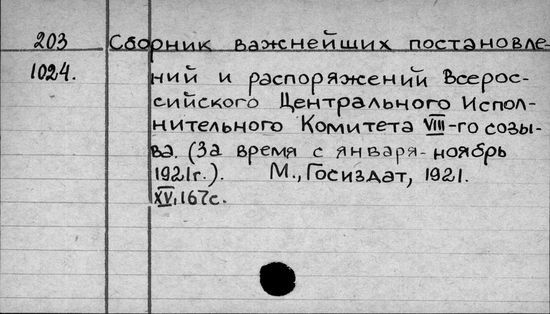 203 Сборник важнейших постановле-
1024. ний и распоряжений Всерос-
сийского Центрального Испол-
нительного Комитета VIII-го созы-
ва. (За время с января-ноябрь
1921г.). М., Госиздат, 1921.
XV, 167с.